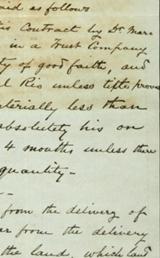 aid as follows
is Contract by Dr. Mari
in a Trust Company
ty of good faith, and
l Ris unless
terially less than
absolutely his on
4 months unless there
quantity -
from the delivery of
er from the delivery
the land, which land